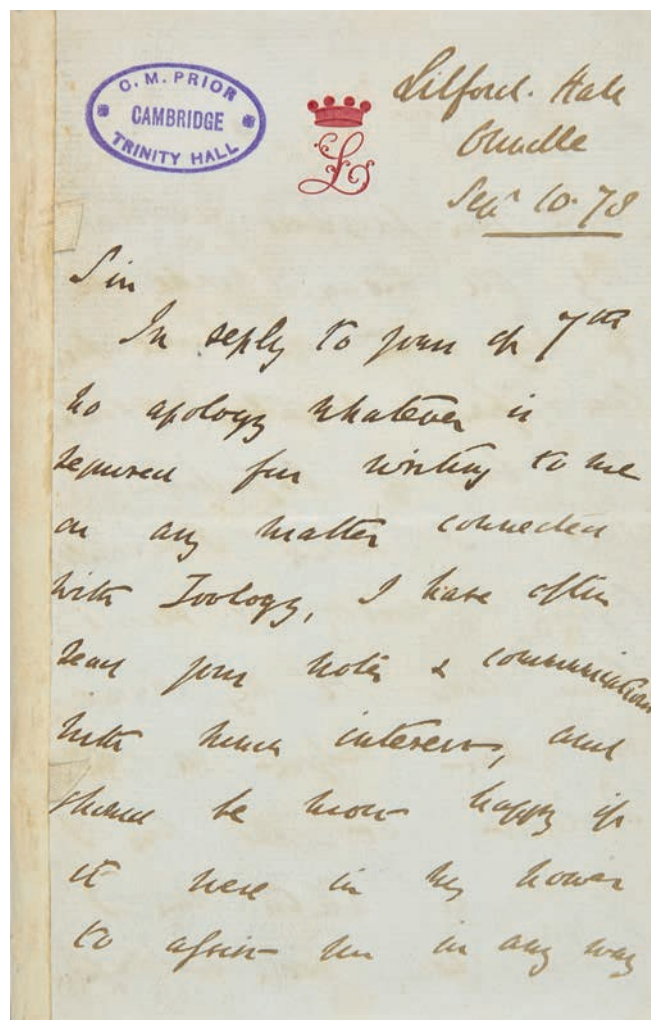 C. M. PRIOR
CAMBRIDGE
TRINITY HALL
L
Lilford. Hall
Oundle
Sepr 10. 78
Sir
In reply to yours of 7th
no apology whatever is
required for writing to me
on any matter connected
with Zoology, I have often
read your notes & communications
with much interest, and
should be most happy if
it were in my power
to assist you in any way